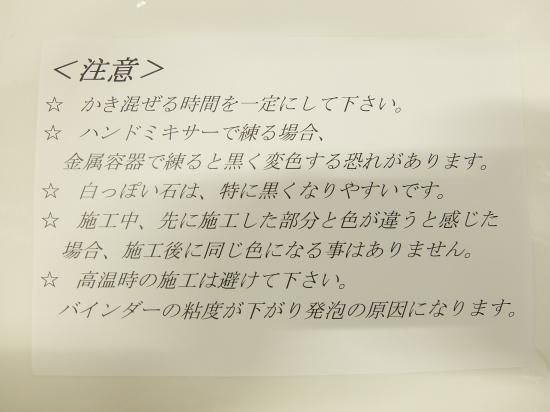 ＜注意＞
☆ かき混ぜる時間を一定にして下さい。
☆ ハンドミキサーで練る場合、
金属容器で練ると黒く変色する恐れがあります。
☆ 白っぽい石は、特に黒くなりやすいです。
☆ 施工中、先に施工した部分と色が違うと感じた
場合、施工後に同じ色になる事はありません。
☆ 高温時の施工は避けて下さい。
バインダーの粘度が下がり発泡の原因になります。